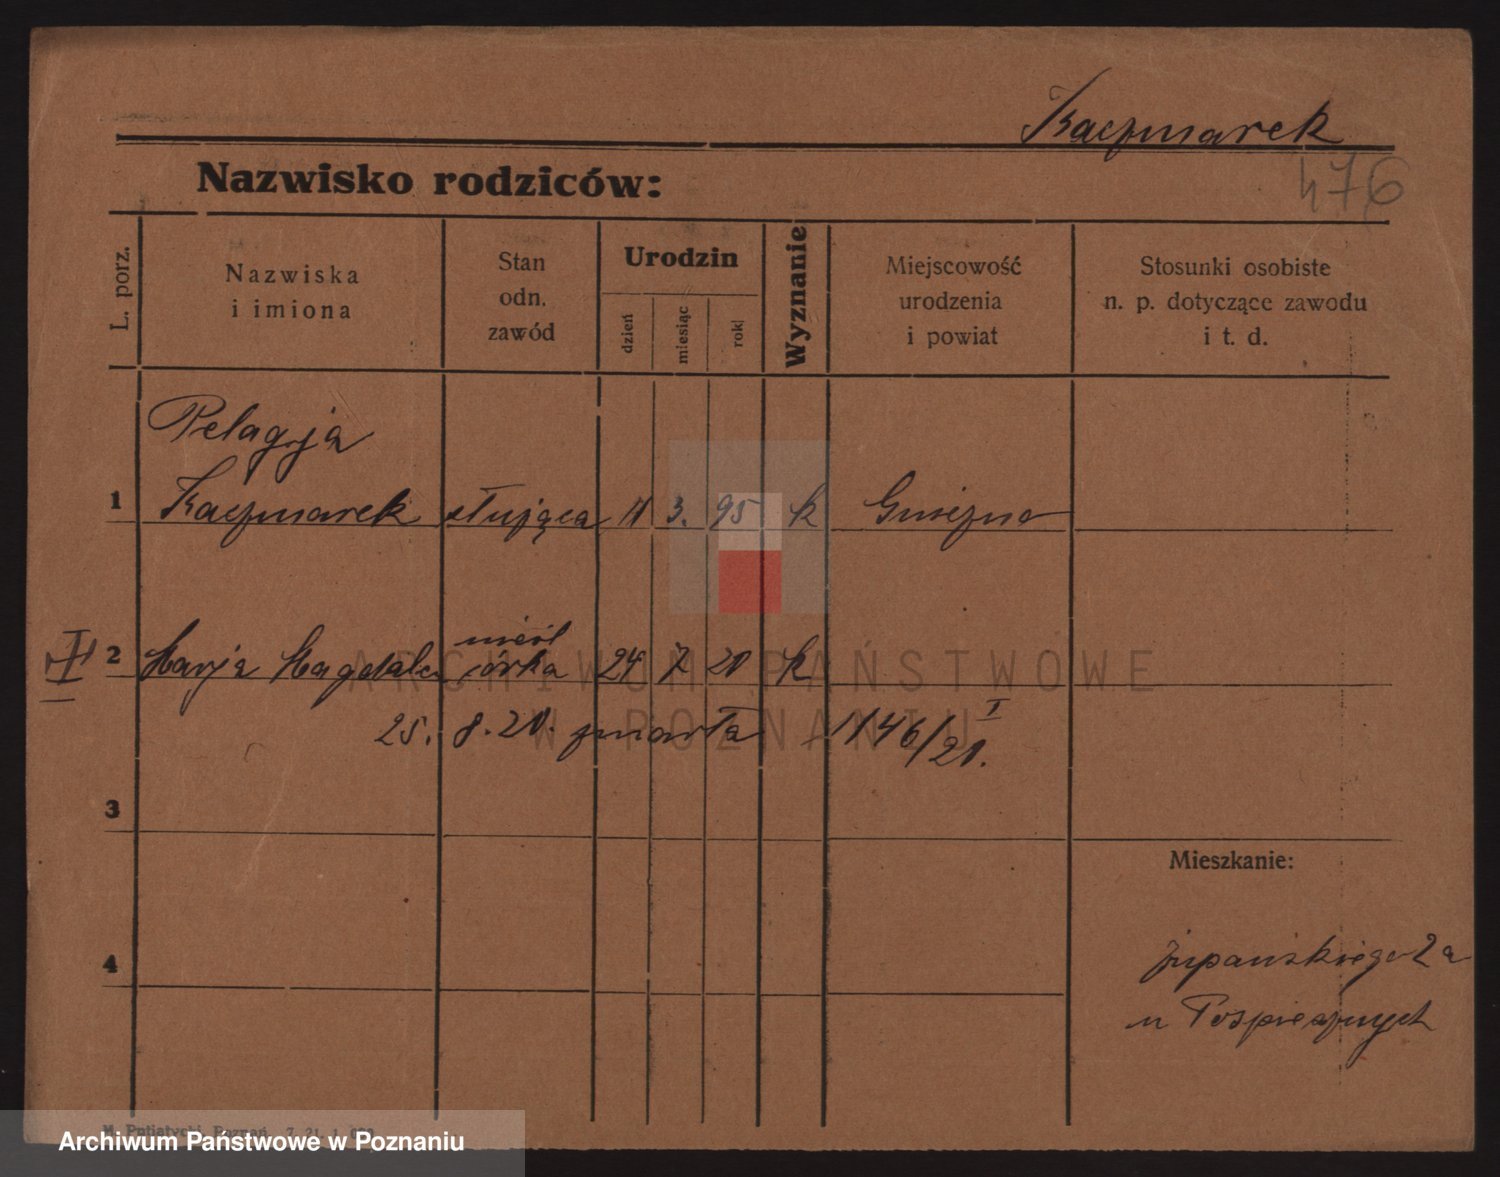 Kaczmarek
476
Nazwisko rodziców:
L. porz.
Nazwiska
i imiona
Stan
odn.
zawód
Urodzin
dzień
miesiąc
rok
Wyznanie
Miejscowość
urodzenia
i powiat
Stosunki osobiste
n. p. dotyczące zawodu
i t. d.
Pelagja
1 Kaczmarek służąca 11 3. 95 k Gniezno
nieśl
2 Marja Magdalena córka 24 7 20 k
25. 8. 20. zmarła 1146/20. I
3
Mieszkanie:
4
Żupańskiego 2a
u Pospiesznych
ARCHIWUM PAŃSTWOWE
W POZNANIU
Archiwum Państwowe w Poznaniu